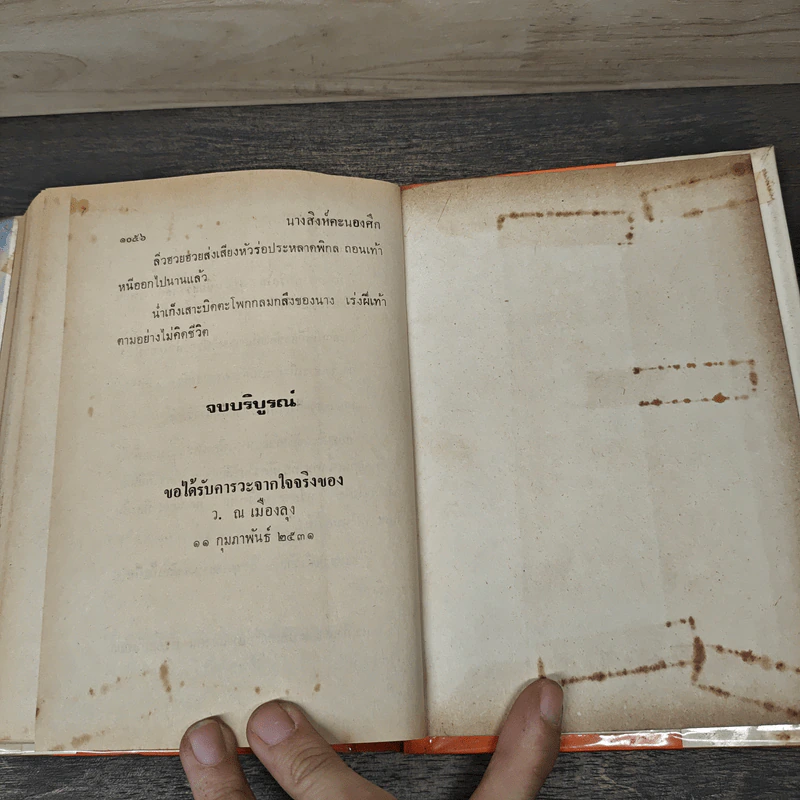 นางสิงห์คะนองศึก
๑๐๕๖
ลิ้วฮวยฮ้วยส่งเสียงหัวร่อประหลาดพิกล ถอนเท้า
หนีออกไปนานแล้ว
น่ำเก็งเสาะบิดตะโพกกลมกลึงของนาง เร่งฝีเท้า
ตามอย่างไม่คิดชีวิต
จบบริบูรณ์
ขอได้รับคารวะจากใจจริงของ
ว. ณ เมืองลุง
๑๑ กุมภาพันธ์ ๒๕๓๑